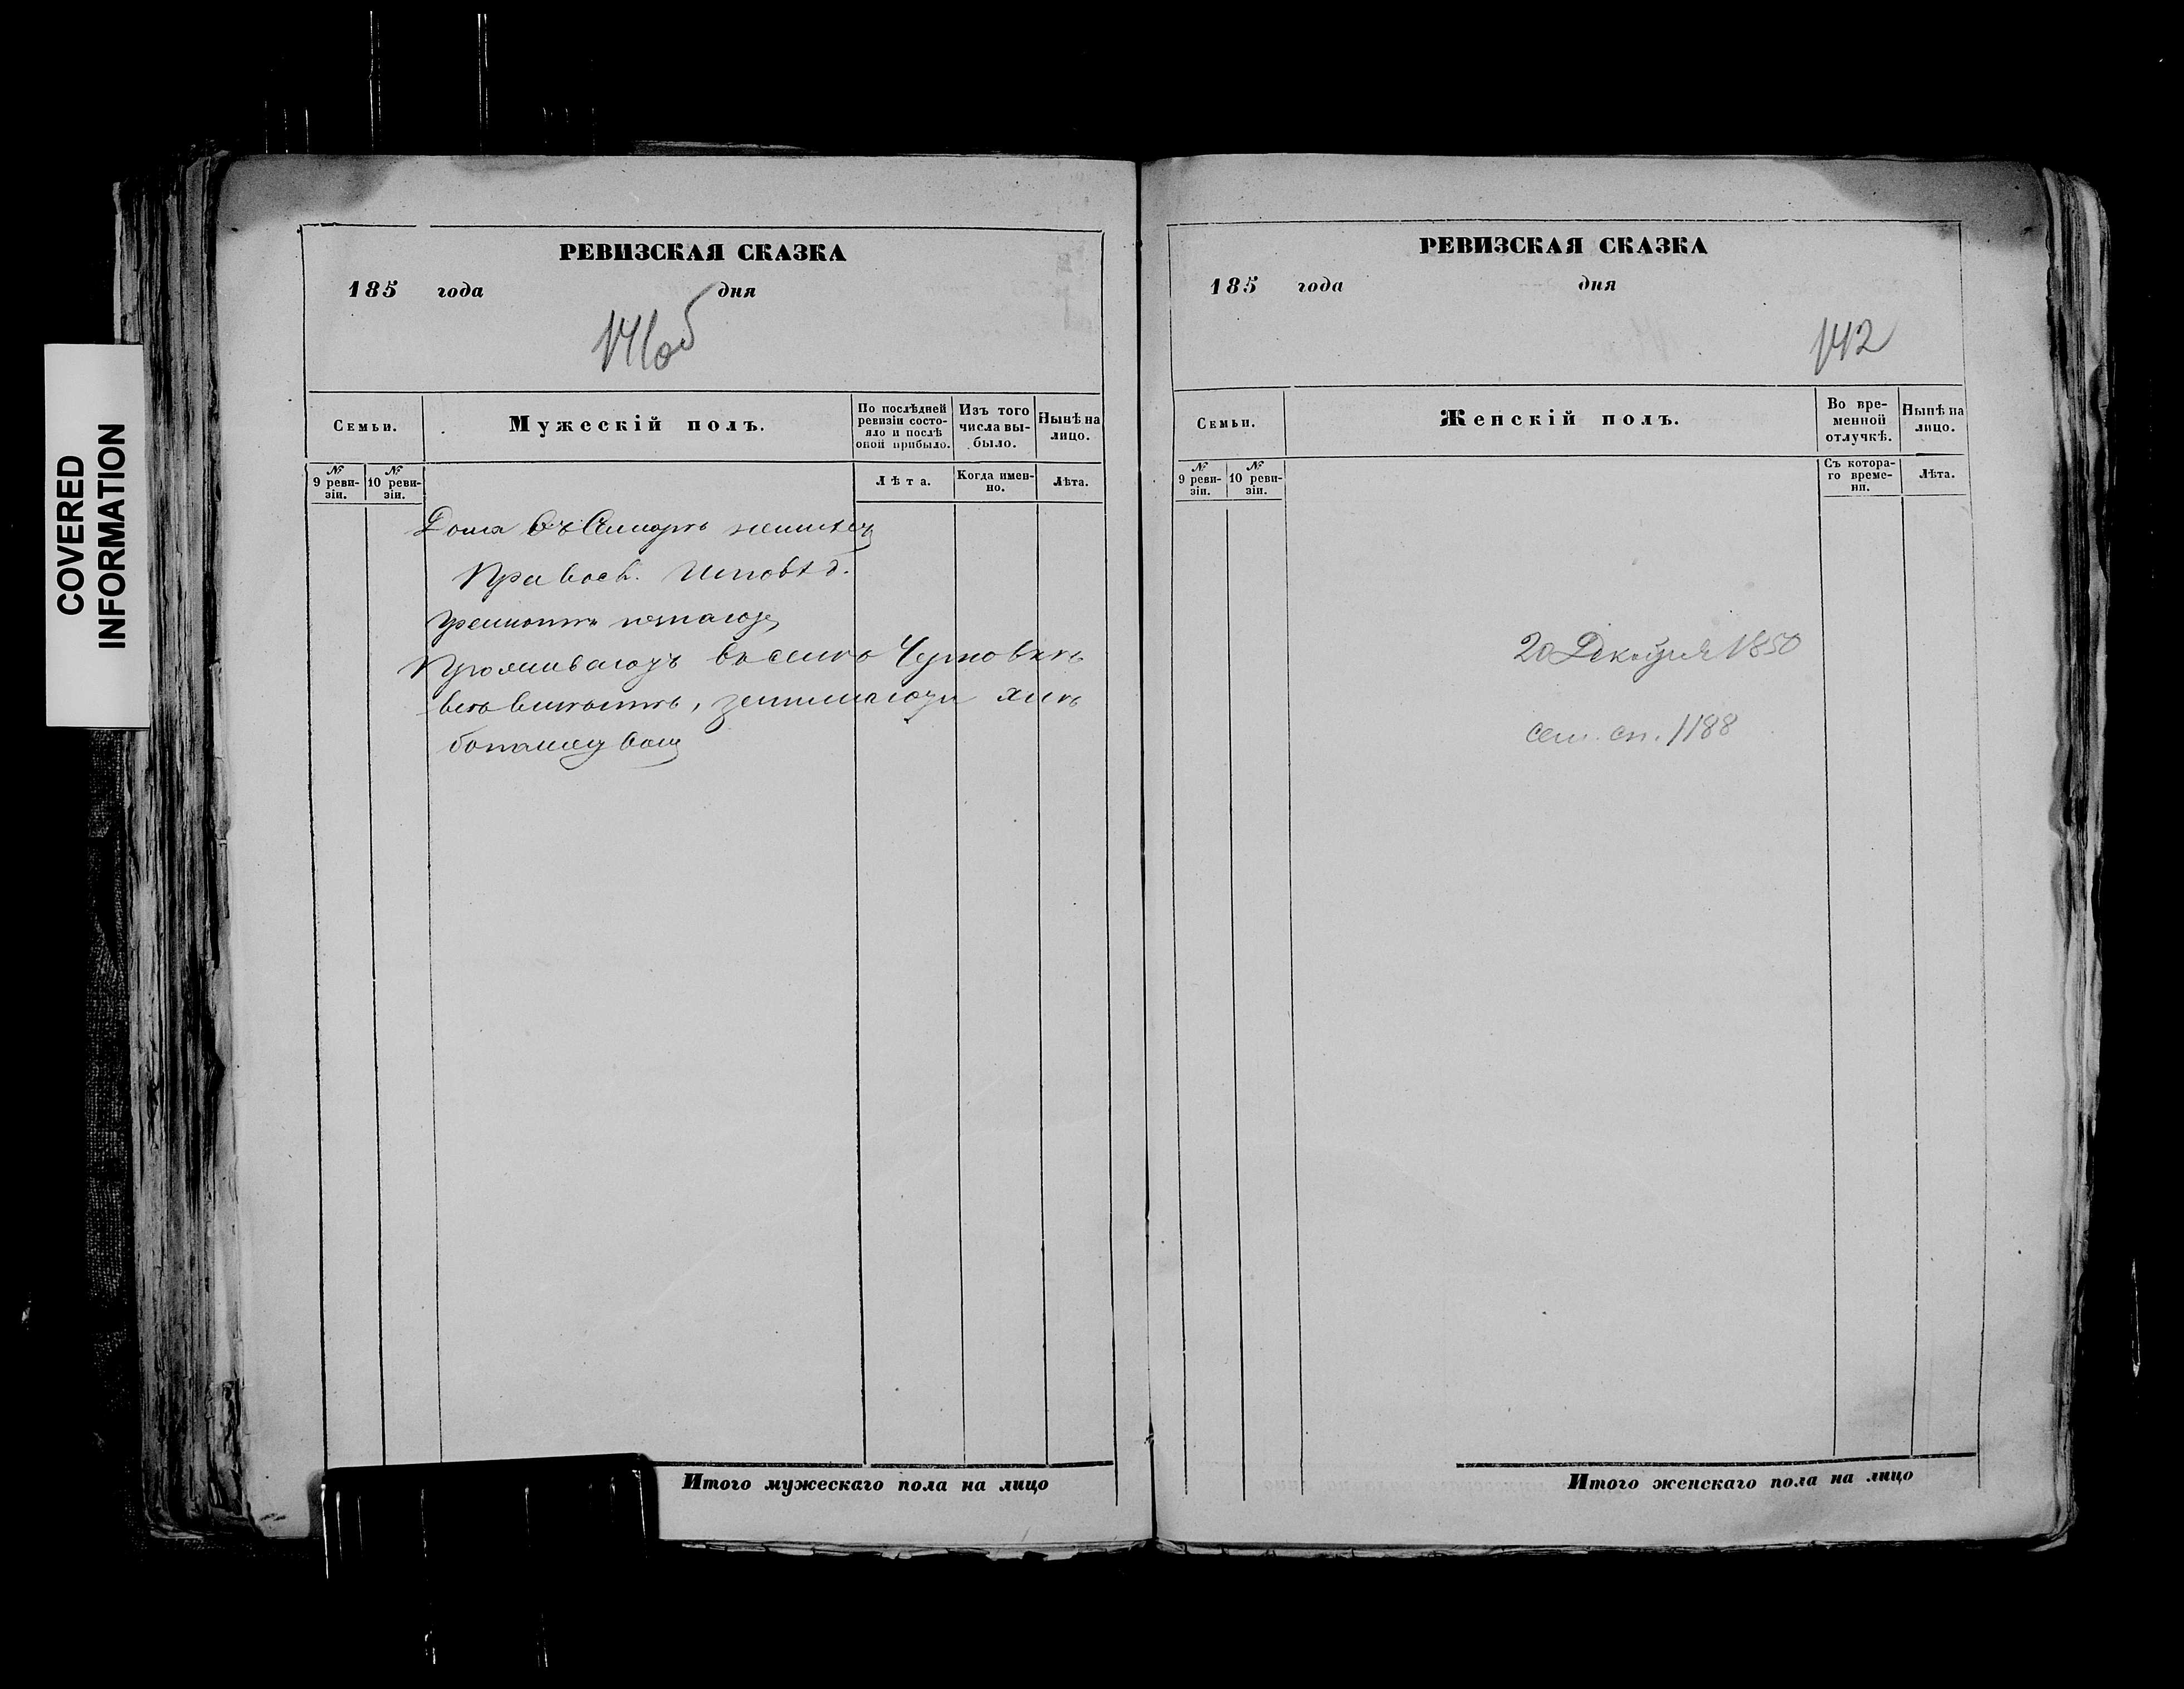 COVERED
INFORMATION
РЕВИЗСКАЯ СКАЗКА
185 года дня
141 об
Семьи.
Мужескій полъ.
По послѣдней ревизіи состояло и послѣ оной прибыло.
Изъ того числа выбыло.
Нынѣ на лицо.
№ 9 ревизіи.
№ 10 ревизіи.
Лѣта.
Когда именно.
Лѣта.
Дома въ Самарѣ неимѣетъ
Правосл. Исповѣд.
грамотѣ незнаютъ
Проживаютъ въ селѣ Черновкѣ
занимаются
Итого мужескаго пола на лицо
РЕВИЗСКАЯ СКАЗКА
185 года дня
142
Семьи.
Женскій полъ.
Во временной отлучкѣ.
Нынѣ на лицо.
№ 9 ревизіи.
№ 10 ревизіи.
Съ котораго времени.
Лѣта.
20 Декабря 1850
сем. сп. 1188
Итого женскаго пола на лицо